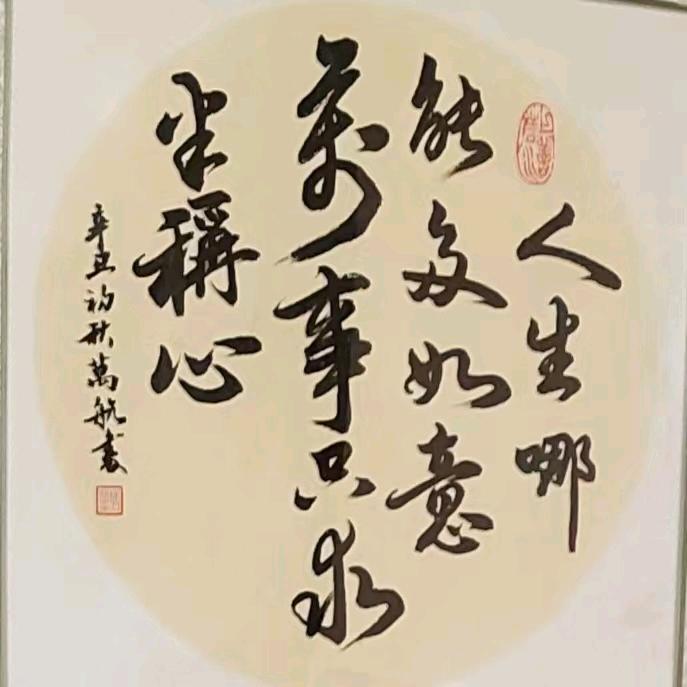 人生哪
能多如意
萬事只求
半稱心
辛丑初秋萬航書